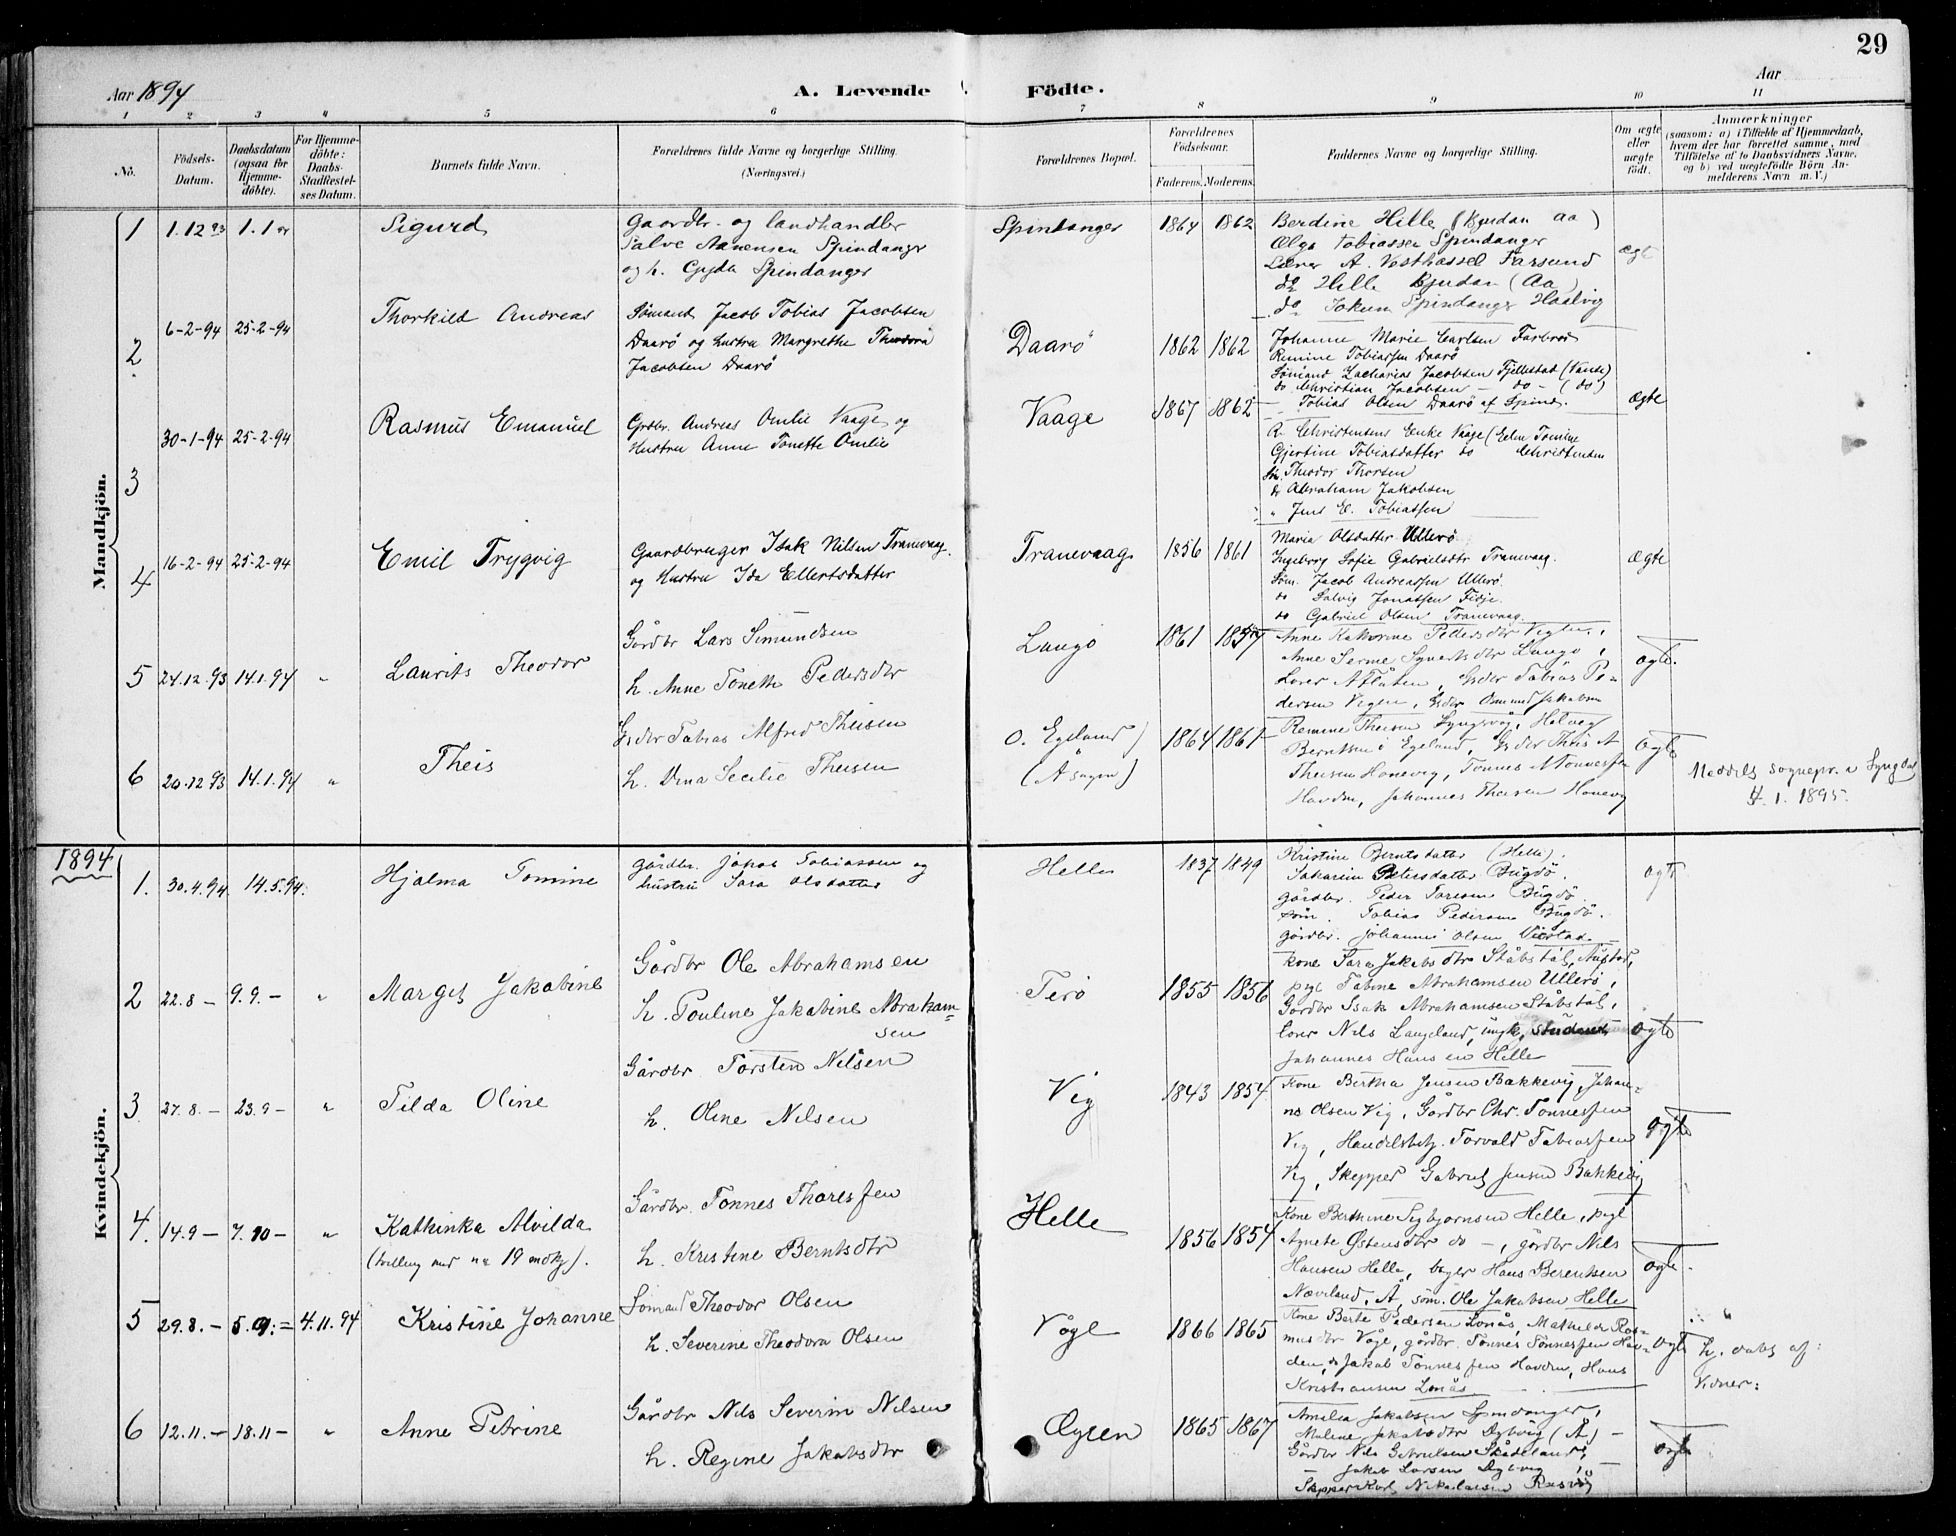 29
Aar 1894 A. Levende Födte. Aar
1 2 3 4 5 6 7 8 9 10 11
No. Födsels-Datum. Daabsdatum (ogsaa for Hjemme-döbte). For Hjemme-döbte: Daabs-Stadfestel-ses Datum. Barnets fulde Navn. Forældrenes fulde Navne og borgerlige Stilling. (Næringsvei.) Forældrenes Bopæl. Forældrenes Födselsaar. Faderens. Moderens. Faddernes Navne og borgerlige Stilling. Om ægte eller uægte födt. Anmærkninger (saasom: a) i Tilfælde af Hjemmedaab, hvem der har forrettet samme, med Tilföielse af to Daabsvidners Navne, og b) ved uægtefödte Börn An-melderens Navn m. V.)
Mandkjön.
1 1.12 93 1.1 94 Sigurd Gaardbr. og landhandler Spindanger 1864 1862 Berdine Hille (Bjudan Aa)
Salve Aanensen Spindanger Olga Tobiassen Spindanger
og h. Gyda Spindanger Lærer A. Vesthassel Farsund ægte
do Hille Bjudan (Aa)
do Jokum Spindanger
2 6-2-94 25-2-94 Thorkild Andreas Sömand Jacob Tobias Jacobsen Daarö 1862 1862 Johanne Marie Carlsen
Daarö og hustru Margrethe Theodora Remine Tobiassen Daarö
Jacobsen Daarö Sömand Zacharias Jacobsen Fjellestad (Vanse)
do Christian Jacobsen - do - (do)
Tobias Olsen Daarö af Spind. ægte
3 30-1-94 25-2-94 Rasmus Emanuel Grdbr. Andreas Omlie Vaage og Vaage 1867 1862
Hustru Anne Tonette Omlie R. Christensens Enke Vaage (Elen Tomine
Gjertine Tobiasdatter do Christensen
Theodor Thorsen
do Abraham Jakobsen
" Jens E. Tobiassen
4 16-2-94 25-2-94 Emil Trygvig Gaardbruger Isak Nilsen Tranevaag Tranevaag 1856 1861 Maria Olsdatter Ullerö
og Hustru Ida Ellertsdatter Ingeborg Sofie Gabrielsdtr Tranevaag ægte
Söm. Jacob Andreassen Ullerö
do Salvig Jonassen Fidje
do Gabriel Olsen Tranevaag
5 24.12.93 14.1.94 " Laurits Theodor Gårdbr Lars Simundsen Langö 1861 1857 Anne Kathrine Pedersdtr
h. Anne Tonette Pedersdtr Anne Serine Syvertsdtr Langö ægte.
Lærer A Flaten, Tobias Pe-
dersen Vigen, Osmund Jakobsen
6 20.12.93 14.1.94 " Theis Tobias Alfred Theisen O. Egeland 1864 1861 Remine Theisen
h. Dina Secilie Theisen Egeland, Theis A ægte
Theisen Hanevig, Tönnes
Havden, Johannes Theisen Hanevig
Meddelt sognepr. i Lyngdal
4. 1. 1895.
1894
Kvindekjön.
1. 30.4.94. 14.5.94. Hjalma Tomine Gårdbr. Jakob Tobiassen og Helle 1837 1849 Kristine Berntsdatter (Helle).
hustru Sara Olsdatter Petersdatter Bugdö. ægte
gårdbr. Peder Bugdö
söm. Tobias Pedersen Bugdö.
gårdbr. Johannes Olsen
2 22.8 - 9.9.- " Marget Jakobine Gårdbr Ole Abrahamsen Terö 1855 1856 Kone Sara Jakobsdtr Ståbstöl, Austad,
h. Pouline Jakobine Abraham- pige Tabine Abrahamsen Ullerö,
sen Gårdbr Isak Abrahamsen Ståbstöl, ægte
lærer Nils Langeland, ungk.
Johannes Hansen Helle
3 27.8.- 23.9 - " Tilda Oline Gårdbr Torsten Nilsen Vig 1843 1854 Kone Bertha Jensen Bakkevig, Johan-
h. Oline Nilsen ne Olsen Vig, Gårdbr Chr. Tönnessen ægte
Vig, Handelsbetj. Torvald Tobiassen
Vig, Skipper Gabriel Jensen Bakkevig
4. 14.9 - 7.10 - " Kathinka Alvilda Gårdbr. Tönnes Tharessen Helle 1856 1854 Kone Berthine Sigbjornsen Helle, pige
(tvilling med no 19 mdkj). h. Kristine Berntsdtr Agnete Ostensdtr do -, gårdbr Nils ægte.
Hansen Helle, Hans Berentsen
Næveland, Å, söm. Ole Jakobsen Helle
5 29.8.- 5.9.= 4.11.94 Kristine Johanne Sömand Theodor Olsen Våge 1866 1865 Kone Berte Pedersen Lonås, Mathilde Ras-
h. Severine Theodora Olsen musdtr Våge, gårdbr. Tönnes Tönnessen Hav- ægte hj. døbt af:
den, Jakob Tönnessen Havden, Hans
Kristiansen Lonås Vidner:
6 12.11.- 18.11 - " Anne Petrine Gårdbr Nils Severin Nilsen Ögreen 1865 1867 Amalia Jakobsen Spindanger,
h. Regine Jakobsdtr Maline Jakobsdtr Dybvig (Å) -
Gårdbr Nils Gabrielsen ægte
Jakob Larsen Dybvig
Skipper Karl Nikolaisen Rasvåg